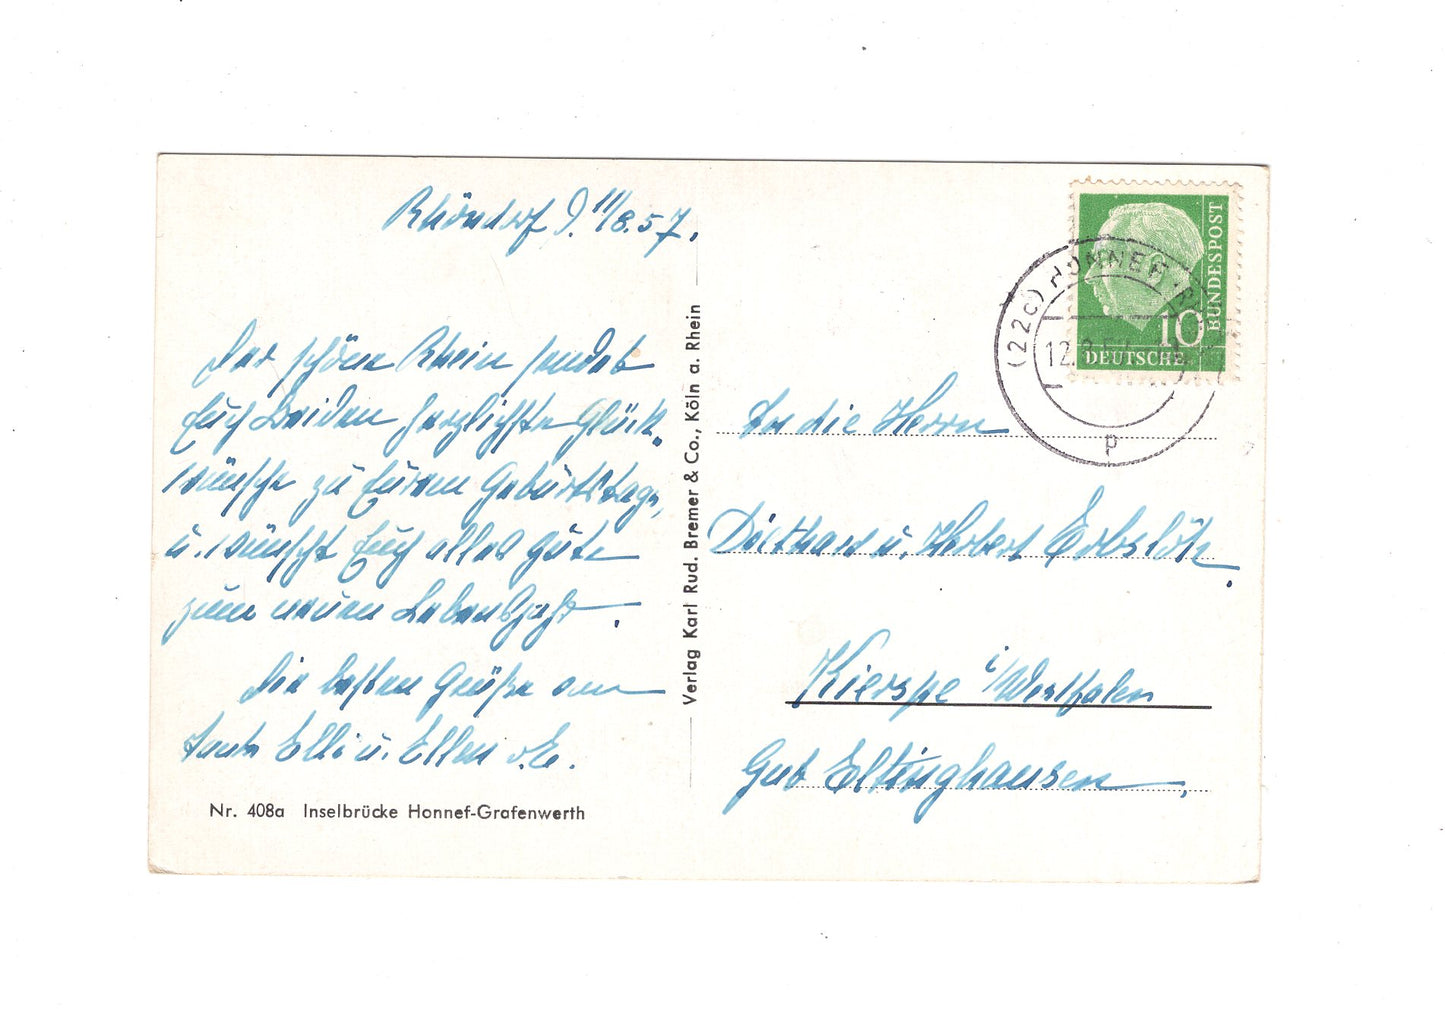 Rhöndorf d. 11/8.57.
Der schöne Rhein sendet
Euch Beiden herzlichste Glück-
wünsche zu Euren Geburtstage,
u. wünscht Euch alles Gute
zum neuen Lebensjahr.
Die besten Grüße von
Tante Elli u. Ellen v.E.
Nr. 408a Inselbrücke Honnef-Grafenwerth
Verlag Karl Rud. Bremer & Co., Köln a. Rhein
(22c) HONNEF
12.
P
10
DEUTSCHE
BUNDESPOST
An die Herrn
Diethard u. Herbert Erbslöh,
Kierspe i/Westfalen
Gut Eltinghausen,